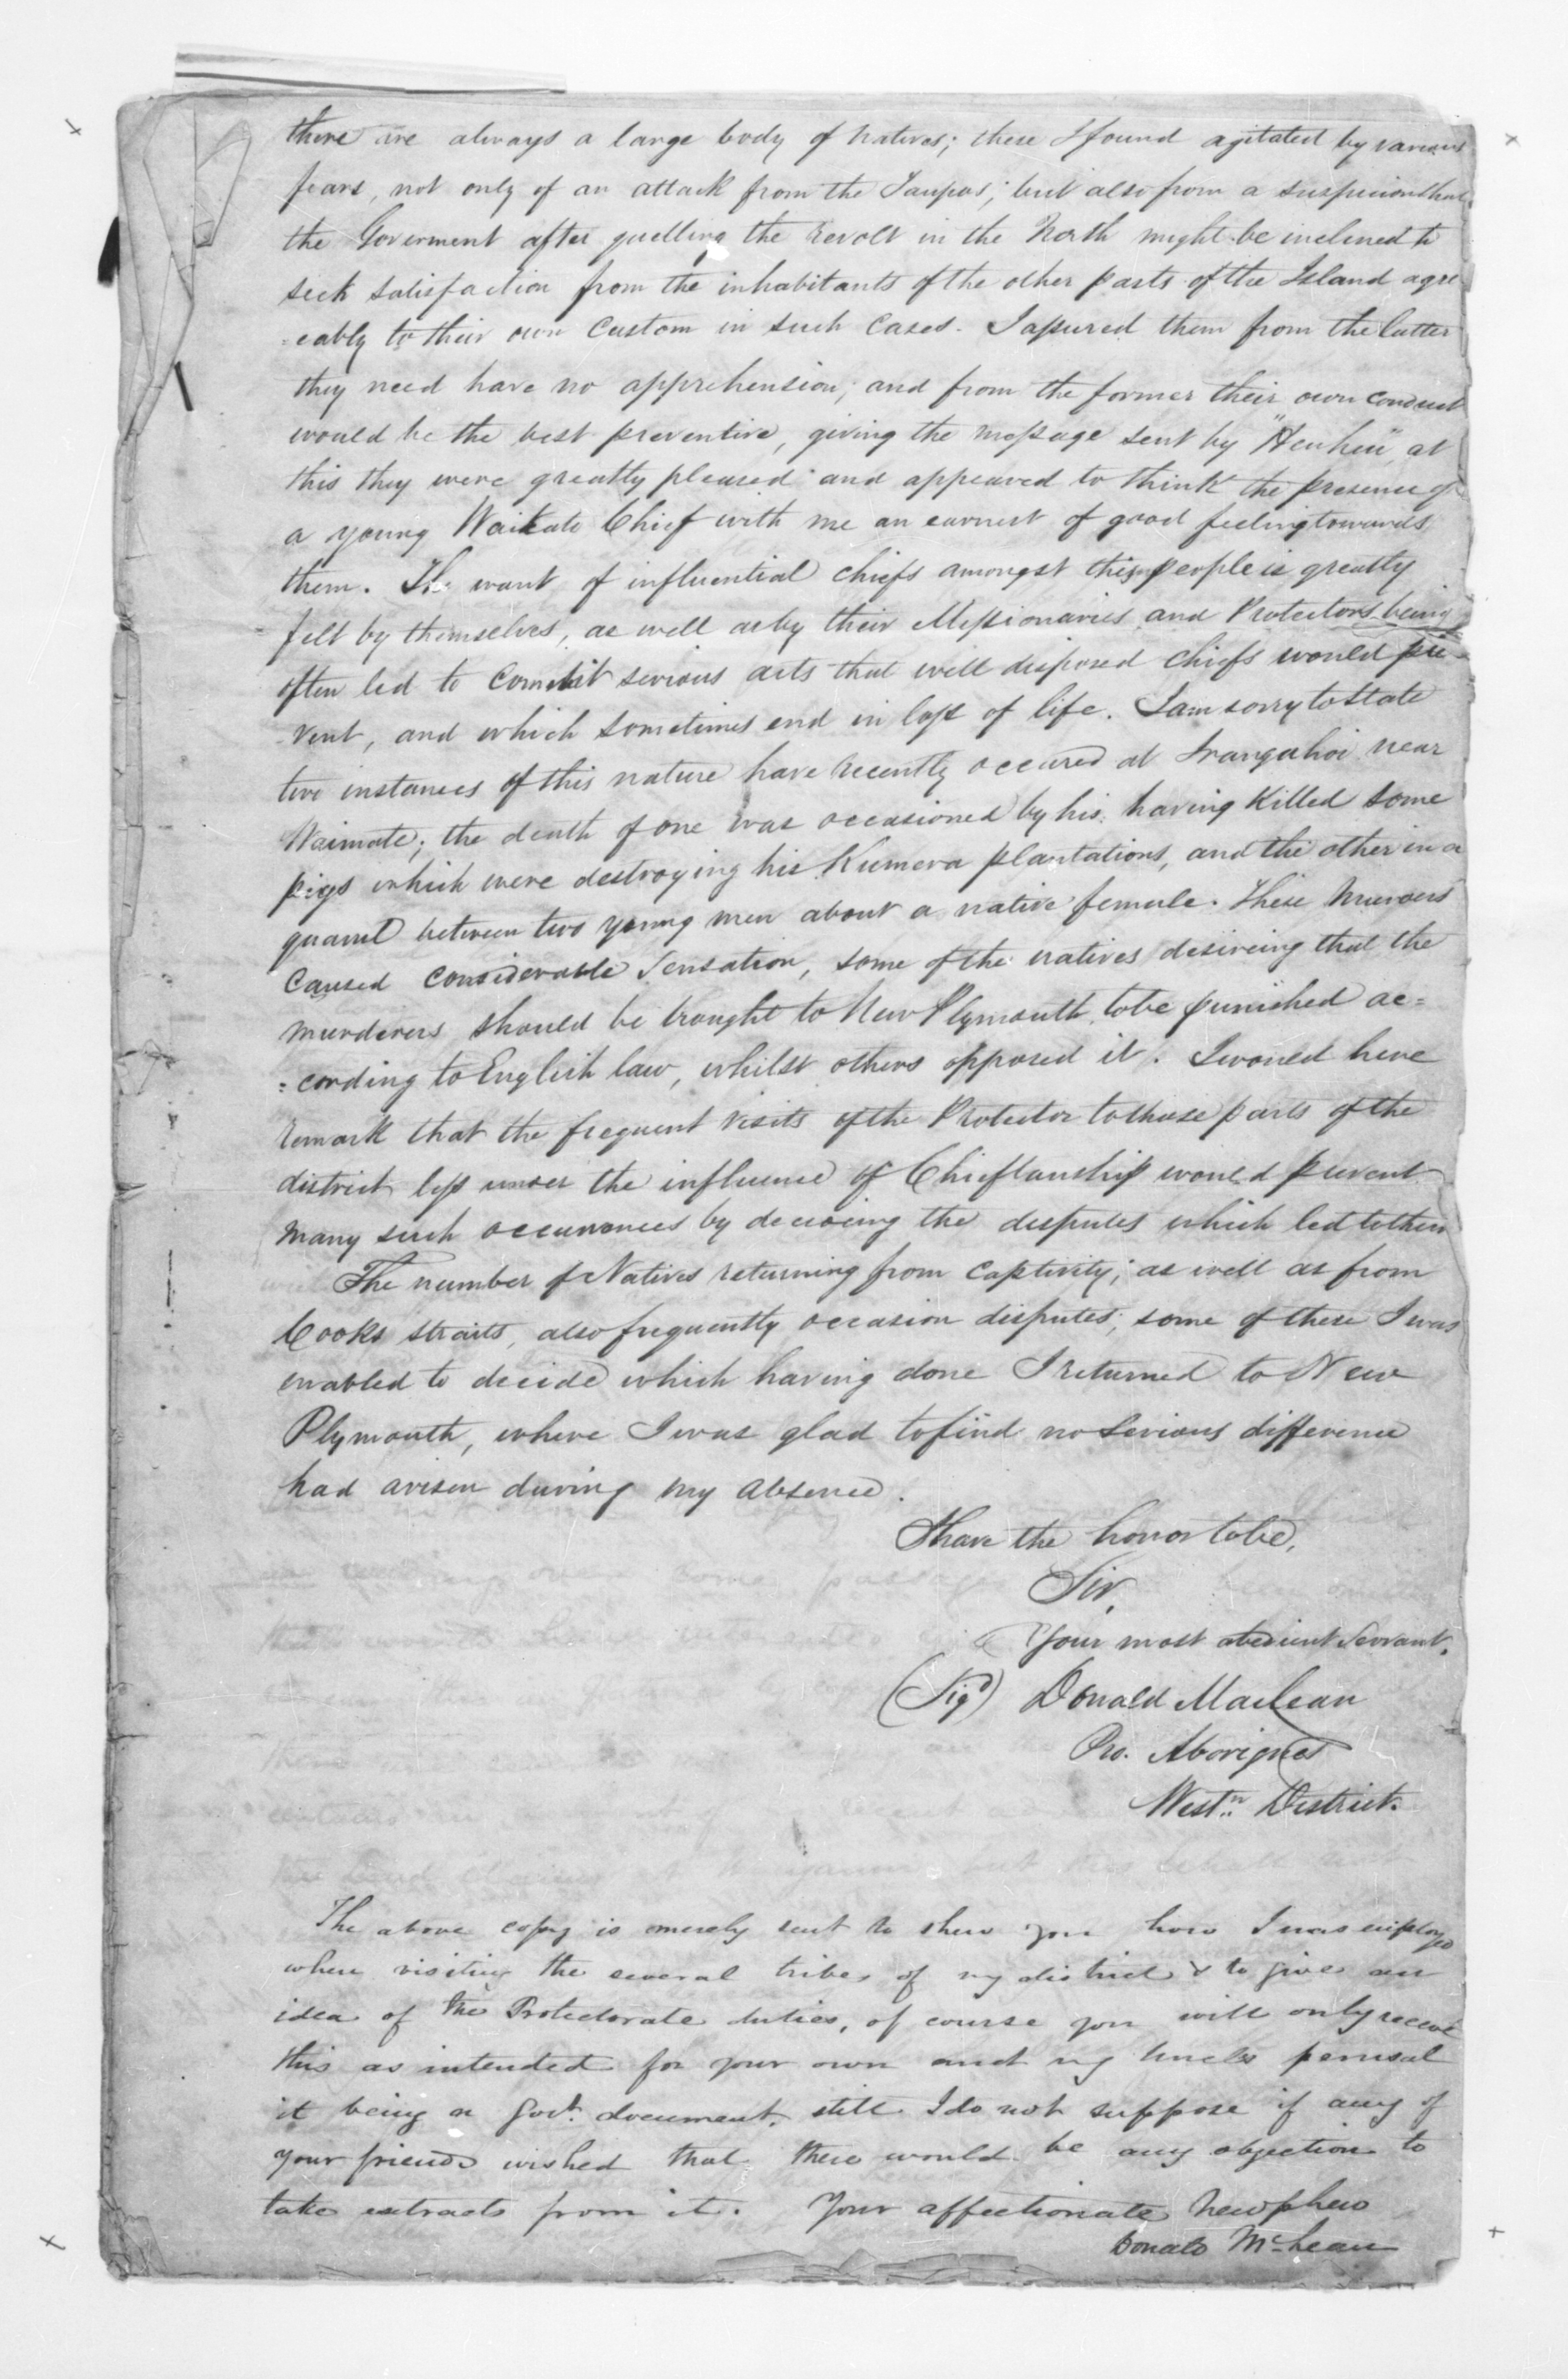 there are always a large body of natives; these I found agitated by various
fears, not only of an attack from the Taupos; but also from a suspicion that
the Goverment after quelling the revolt in the North might be inclined to
seek satisfaction from the inhabitants of the other parts of the Island agre
=eably to their own Custom in such cases. I assured them from the latter
they need have no apprehension; and from the former their own conduct
would be the best preventive, giving the message sent by "Heuheu", at
this they were greatly pleased and appeared to think the presence of
a young Waikato Chief with me an earnest of good feeling towards
them. The want of influential chiefs amongst this people is greatly
felt by themselves, as well as by their Missionaries and Protectors being
often led to commit serious acts that well disposed chiefs would pre
vent, and which sometimes end in loss of life. I am sorry to state
two instances of this nature have recently occured at Irangahoi near
Waimate; the death of one was occasioned by his having killed some
pigs which were destroying his Kumera plantations, and the other in a
quarrel between two young men about a native female. These murders
caused considerable sensation, some of the natives desireing that the
murderers should be brought to New Plymouth to be punished ac=
=cording to English law, whilst others opposed it. I would here
remark that the frequent visits of the Protector to those parts of the
district less under the influence of Chieftanship would prevent
many such occurrences by deciding the disputes which led to them
The number of Natives returning from captivity; as well as from
Cooks straits, also frequently occasion disputes; some of these I was
enabled to decide which having done I returned to New
Plymouth, where I was glad to find no serious difference
had arisen during my absence.
I have the honor to be,
Sir,
Your most obedient Servant.
(Sigd) Donald MacLean
Pro. Aborignes
Westn. District.
The above copy is merely sent to shew you how I was employed
when visiting the several tribes of my district & to give an
idea of the Protectorate duties, of course you will only receive
this as intended for your own and my Uncles perusal
it being a Govt. document, still I do not suppose if any of
your friends wished that there would be any objection to
take extracts from it. Your affectionate Newphew
Donald McLean